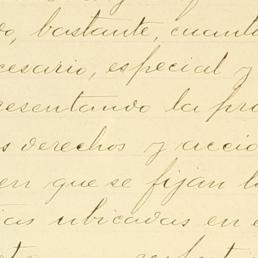 o, bastante, cuanto
cesario, especial y
resentando la pro
s derechos y accio
en que se fijan l
ias ubicadas en e